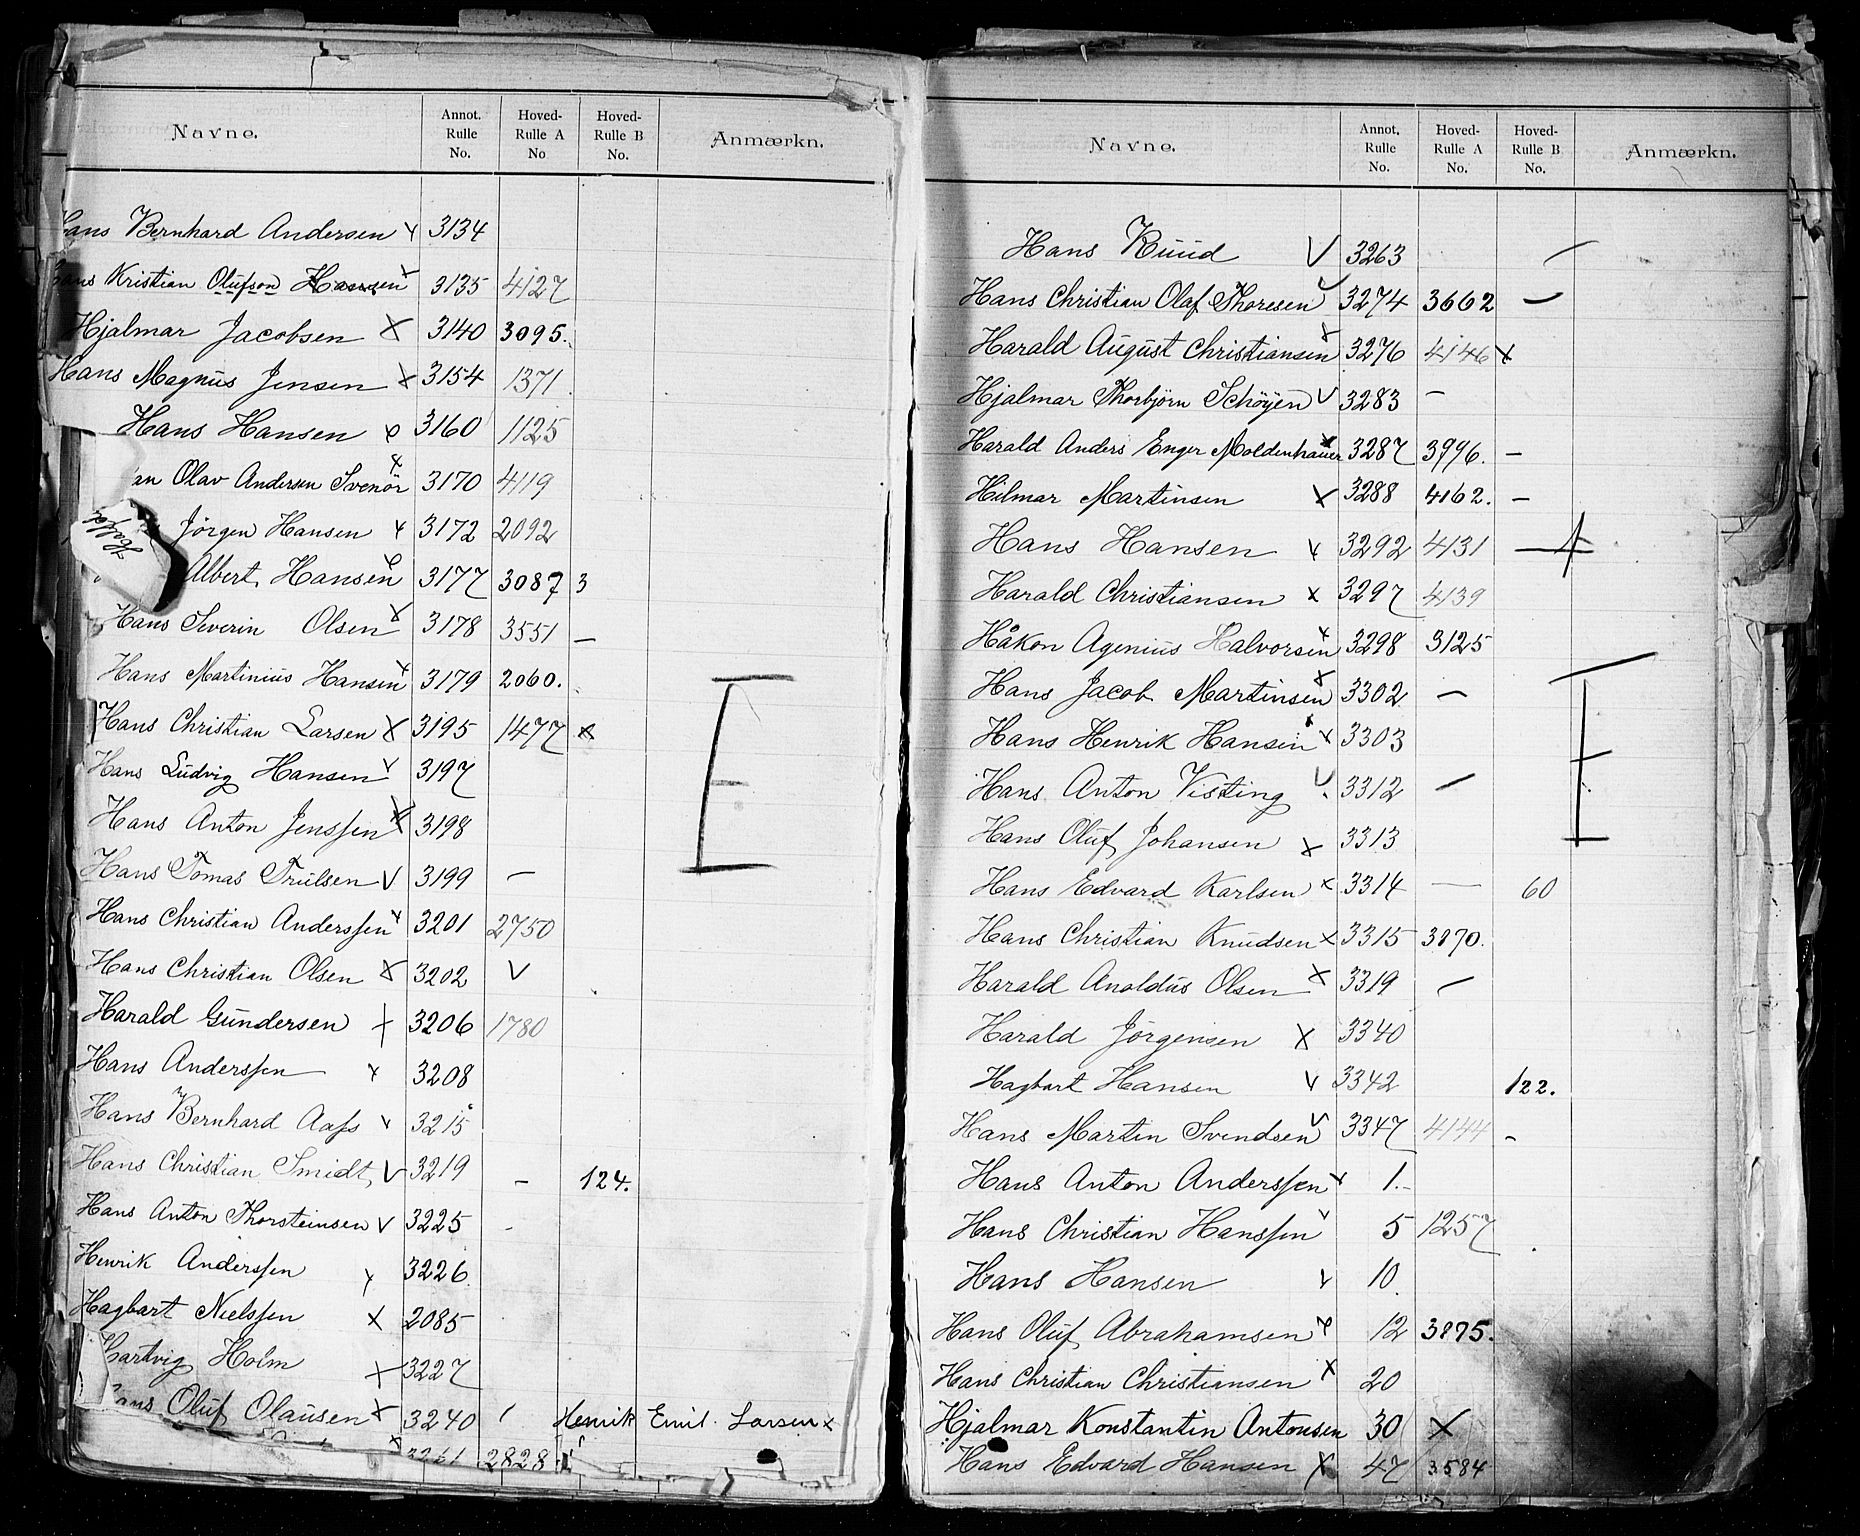 Navne. Annot. Rulle No. Hoved-Rulle A No Hoved-Rulle B No. Anmærkn.
Hans Bernhard Andersen x 3134
Hans Kristian Olufson Hansen x 3135 4127
Hjalmar Jacobsen x 3140 3095.
Hans Magnus Jensen x 3154 1371
Hans Hansen 3160 1125
an Olav Andersen Svenör x 3170 4119
Jørgen Hansen x 3172 2092
Albert Hansen 3177 3087 3
Hans Severin Olsen x 3178 3551 –
Hans Martinius Hansen x 3179 2060.
Hans Christian Larsen x 3195 1477 x
Hans Ludvig Hansen v 3197
Hans Anton Jenssen x 3198
Hans Tomas Trulsen v 3199 –
Hans Christian Anderssen x 3201 2750
Hans Christian Olsen x 3202 v
Harald Gundersen x 3206 1780
Hans Anderssen x 3208
Hans Bernhard Aass v 3215
Hans Christian Smidt v 3219 – 124.
Hans Anton Thorsteinsen v 3225 –
Henrik Anderssen x 3226
Hagbart Nielssen x 2085
Hartvig Holm x 3227
Hans Oluf Olausen x 3240 Henrik Emil Larsen x
x 3261 2828
E
Navne. Annot. Rulle No. Hoved-Rulle A No. Hoved-Rulle B No. Anmærkn.
Hans Ruud v 3263 –
Hans Christian Olaf Thoresen v 3274 3662 –
Harald August Christiansen x 3276 4146 x
Hjalmar Thorbjörn Schöyen v 3283 –
Harald Anders Enger Moldenhauer x 3287 3996. –
Hilmar Martinsen x 3288 4162. –
Hans Hansen x 3292 4131 –
Harald Christiansen x 3297 4139
Håkon Agenius Halvorsen x 3298 3125
Hans Jacob Martinsen x 3302 –
Hans Henrik Hansen x 3303
Hans Anton Visting v. 3312 –
Hans Oluf Johansen x 3313
Hans Edvard Karlsen x 3314 – 60
Hans Christian Knudsen x 3315 3870.
Harald Anoldus Olsen x 3319 –
Harald Jörgensen x 3340
Hagbart Hansen v 3342 122.
Hans Martin Svendsen v 3347 4144 –
Hans Anton Anderssen x 1.–
Hans Christian Hanssen v 5 1257
Hans Hansen v 10
Hans Oluf Abrahamsen 12 3875.
Hans Christian Christiansen x 20
Hjalmar Konstantin Antonsen 30 x
Hans Edvard Hansen x 47 3584